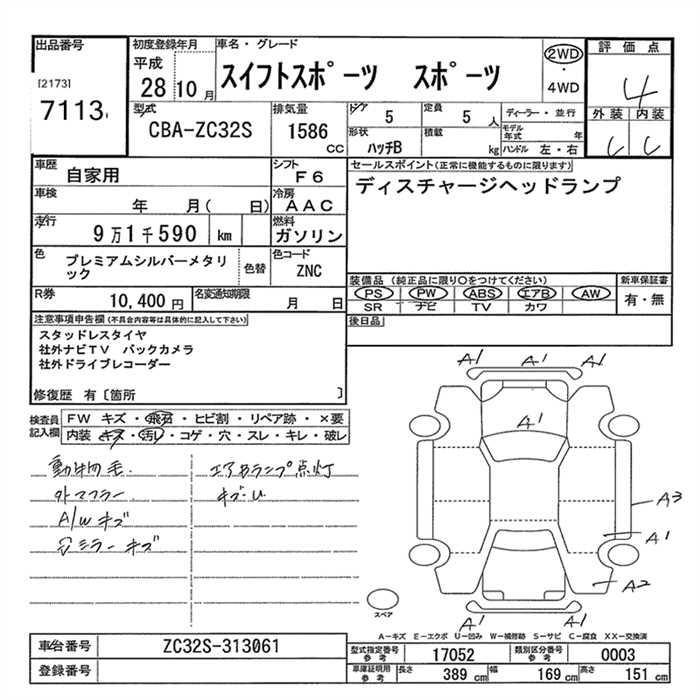 出品番号
[2173]
7113
初度登録年月
平成
28 10 月
車名・グレード
スイフトスポーツ スポーツ
2WD
・
4WD
評価点
4
外装 内装
C C
型式
CBA-ZC32S
排気量
1586
CC
ドア 5
形状 ハッチB
定員 5 人
積載 kg
ディーラー・並行
モデル年式 年
ハンドル 左・右
車歴
自家用
シフト
F6
車検
年 月( 日)
冷房
AAC
走行
9万1千590 km
燃料
ガソリン
色
プレミアムシルバーメタリ
ック
色替
色コード
ZNC
R券
10,400 円
名変通知期限
月 日
セールスポイント(正常に機能するものに限ります)
ディスチャージヘッドランプ
装備品 (純正品に限り○をつけてください)
PS PW ABS エアB AW
SR ナビ TV カワ
新車保証書
有・無
後日品
注意事項申告欄(不具合内容等は具体的に記入して下さい)
スタッドレスタイヤ
社外ナビTV バックカメラ
社外ドライブレコーダー
修復歴 有〔箇所 〕
検査員
記入欄
FW キズ・飛石・ヒビ割・リペア跡・×要
内装 キズ・汚レ・コゲ・穴・スレ・キレ・破レ
動物毛
外マフラー
A/W キズ
ミラー キズ
エアBランプ点灯
キズ・U
A1 A1 A1
A1
A3
A1
A2
A1 A1
スペア
A-キズ E-エクボ U-凹み W-補修跡 S-サビ C-腐食 XX-交換済
車台番号
ZC32S-313061
登録番号
型式指定番号
参考
17052
類別区分番号
参考
0003
車庫証明用
参考
長さ 389 cm
幅 169 cm
高さ 151 cm